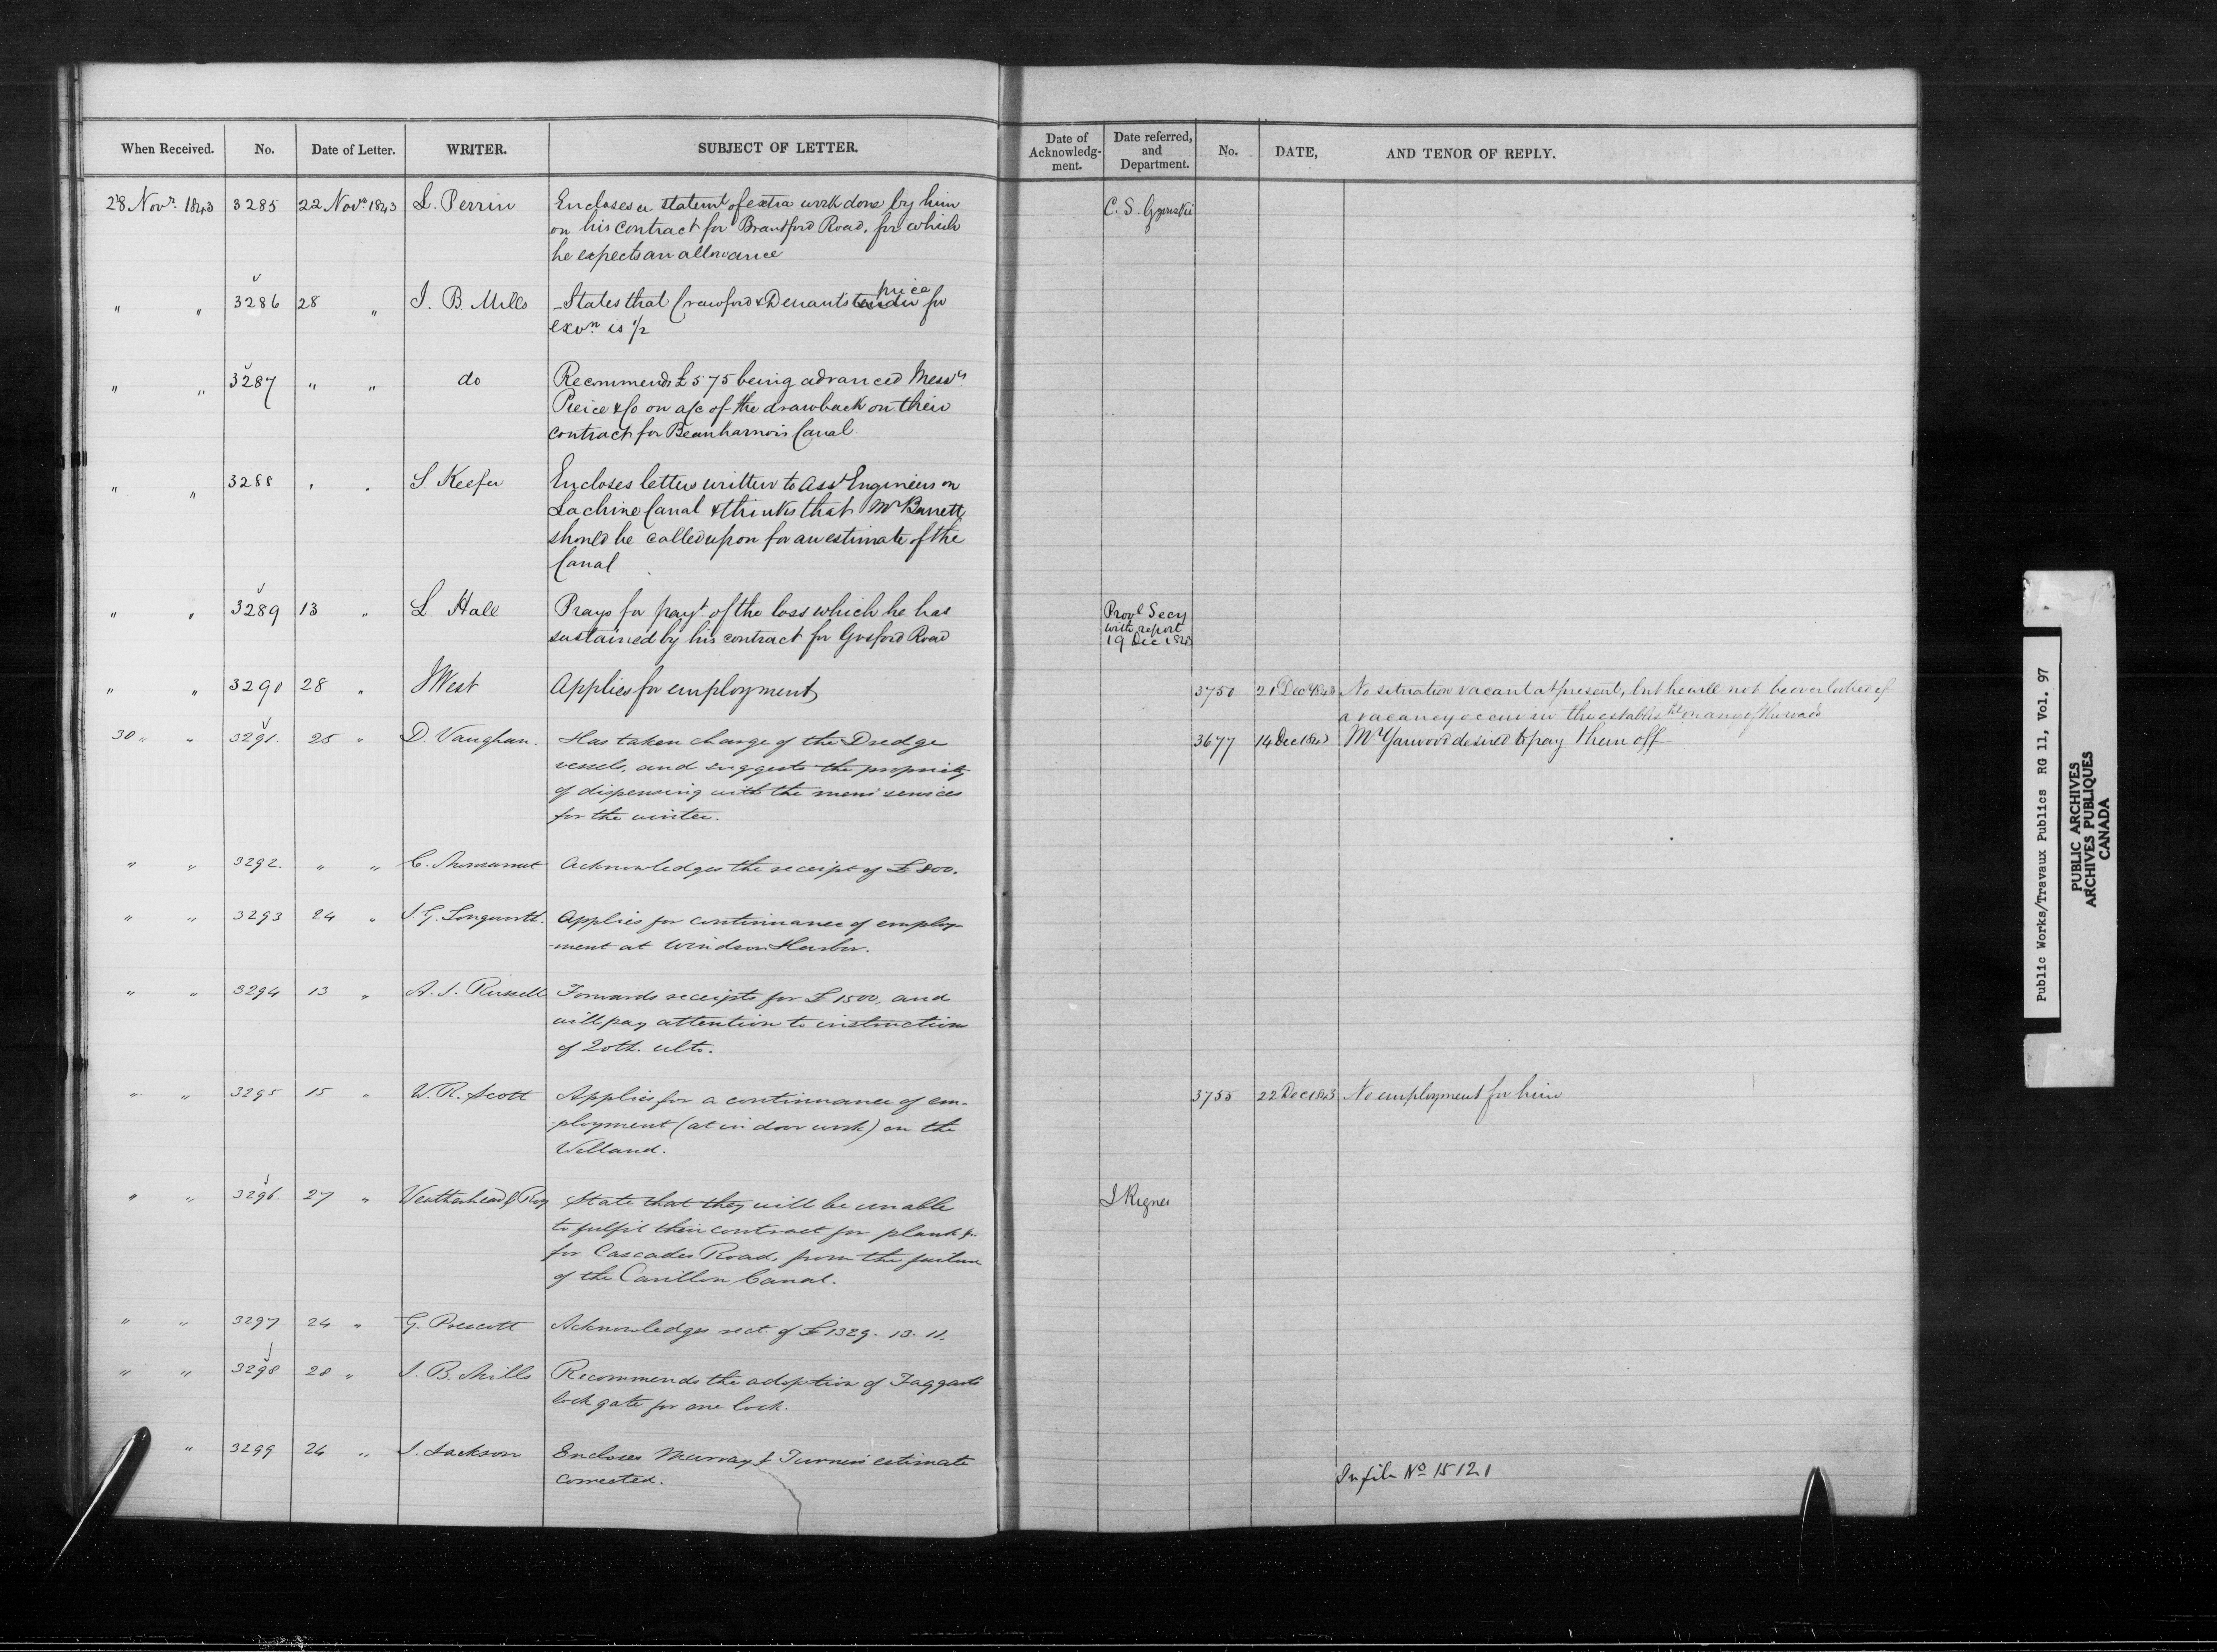 When Received. No. Date of Letter. WRITER. SUBJECT OF LETTER.
Date of Acknowledg-ment. Date referred, and Department. No. DATE, AND TENOR OF REPLY.
28 Novr. 1843 3285 22 Novr 1843 L. Perrin Encloses a statemt of extra work done by him C. S. Gzowski
on his contract for Brantford Road, for which
he expects an allowance
" " 3286 28 " J. B. Mills States that Crawford & Denants tender price for
exvn is 1/2
" " 3287 " " do Recommends £575 being advanced Messrs
Peirce & Co on a/c of the drawback on their
contract for Beauharnois Canal.
" " 3288 " " S. Keefer Encloses letter written to Asst Engineers on
Lachine Canal & thinks that Mr Barrett
should be called upon for an estimate of the
Canal
" " 3289 13 " L. Hall Prays for payt. of the loss which he has Provl Secy
sustained by his contract for Gosford Road with report
19 Dec 1843
" " 3290 28 " J West Applies for employment 3750 21 Dec 1843 No situation vacant at present, but he will not be overlooked if
a vacancy occur in the establisht on any of the roads
30 " " 3291. 25 " D. Vaughan. Has taken charge of the Dredge 3677 14 Dec 1843 Mr Yarwood desired to pay them off
vessels, and suggests the propriety
of dispensing with the mens' services
for the winter.
" " 3292. " " C. Acknowledges the receipt of £800.
" " 3293 24 " J. G. Longworth. Applies for continuance of employ-
-ment at Windsor Harbor.
" " 3294 13 " A. J. Russell Forwards receipts for £1500, and
will pay attention to instruction
of 20th. ulto.
" " 3295 15 " W. R. Scott Applies for a continuance of em- 3755 22 Dec 1843 No employment for him
-ployment (at in door work) on the
Welland.
" " 3296. 27 " Weatherhead & Roy State that they will be unable
to fulfil their contract for plank &c
for Cascades Road, from the failure
of the Carillon Canal.
" " 3297 24 " G. Prescott Acknowledges rect. of £1329. 13. 11.
" " 3298 28 " J. B. Mills Recommends the adoption of Taggarts
lock gate for one lock.
" 3299 24 " J. Jackson Encloses Murray & Turners estimate
corrected.
In file No 15121
Public Works/Travaux Publics RG 11, Vol. 97
PUBLIC ARCHIVES
ARCHIVES PUBLIQUES
CANADA